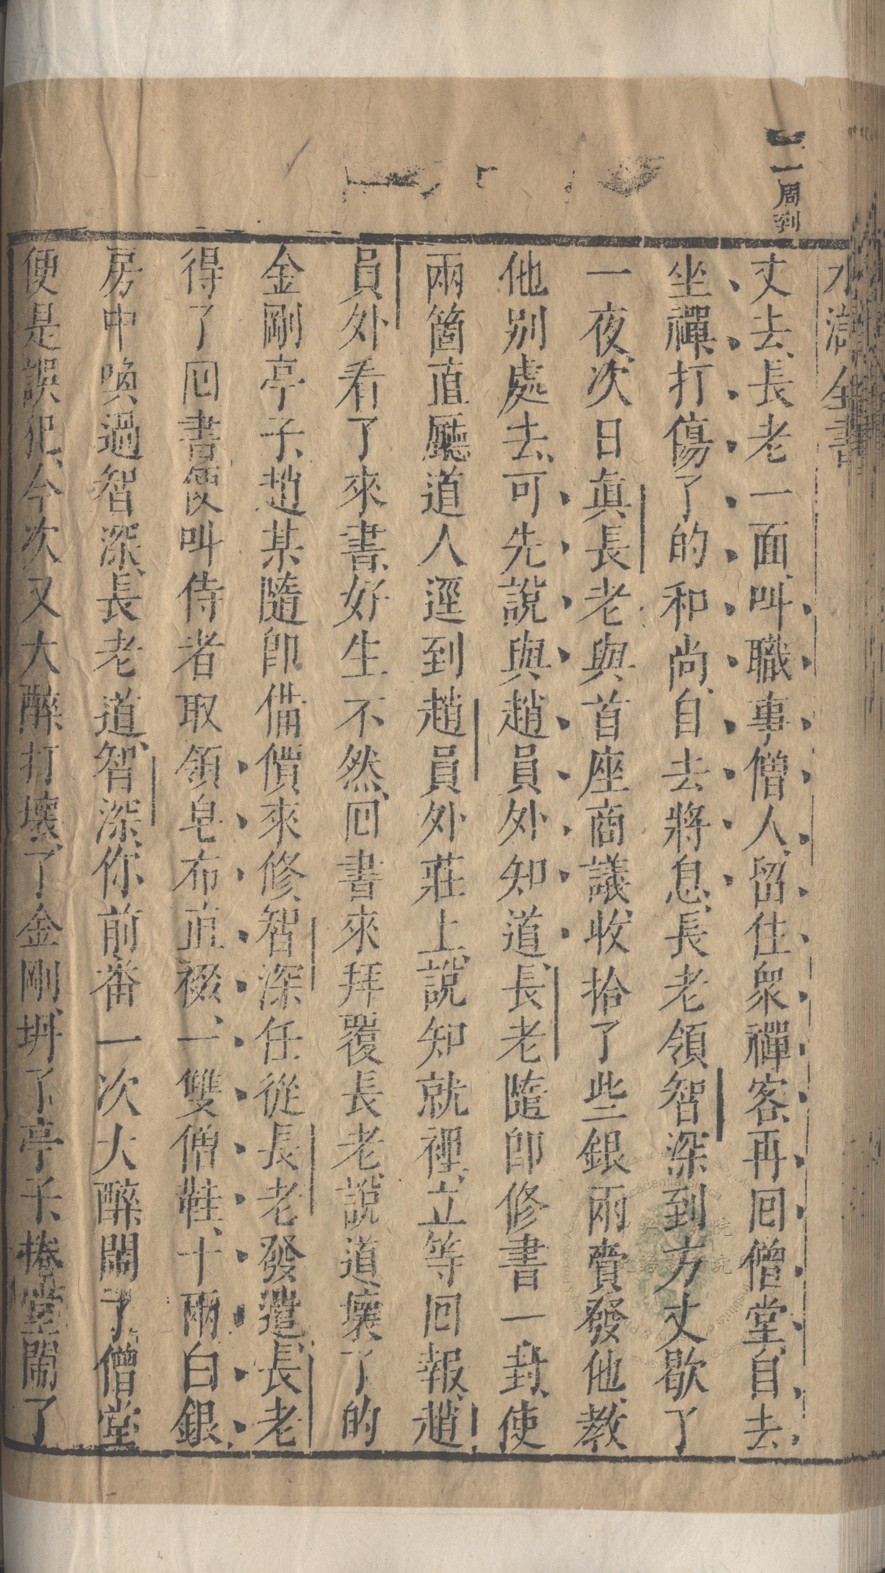 水滸全書
周到
丈去、長老一面、叫職事僧人、留住衆禪客、再囘僧堂、自去
坐禪、打傷了的和尚、自去將息、長老領智深到方丈歇了
一夜、次日眞長老與首座商議、收拾了些銀兩賫發他、教
他别處去、可先說與趙員外知道、長老隨卽修書一封、使
兩箇直廳道人逕到趙員外莊上、說知就裡、立等回報、趙
員外看了來書、好生不然、回書來拜覆長老、說道、壞了的
金剛亭子、趙某隨卽備價來修、智深任從長老發遣、長老
得了回書、便叫侍者取領皂布直裰、一雙僧鞋、十兩白銀、
房中喚過智深、長老道、智深、你前番一次大醉、鬧了僧堂
便是誤犯、今次又大醉、打壞了金剛、坍了亭子、捲堂鬧了